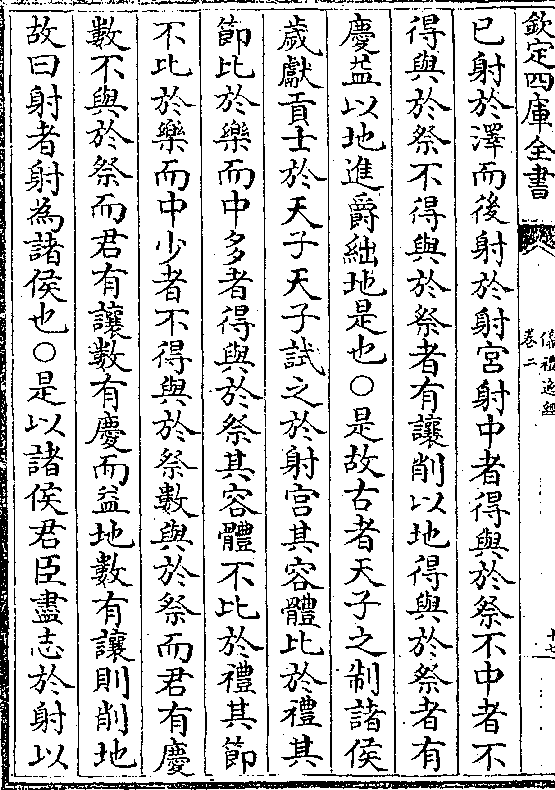 欽定四庫全書
儀禮逸經
卷二
十七
已射於澤而後射於射宮射中者得與於祭不中者不
得與於祭不得與於祭者有讓削以地得與於祭者有
慶益以地進爵絀地是也○是故古者天子之制諸侯
歲獻貢士於天子天子試之於射宮其容體比於禮其
節比於樂而中多者得與於祭其容體不比於禮其節
不比於樂而中少者不得與於祭數與於祭而君有慶
數不與於祭而君有讓數有慶而益地數有讓則削地
故曰射者射為諸侯也○是以諸侯君臣盡志於射以